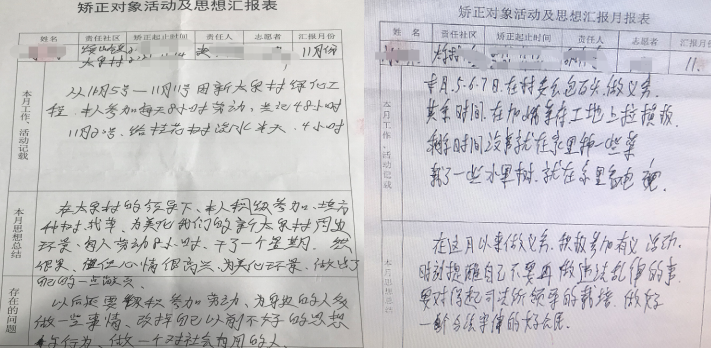 矫正对象活动及思想汇报表
姓名 责任社区 矫正起止时间 责任人 志愿者 汇报月份
太泉村 11月份
本月工作、活动记载
从11月5号—11月11号因新太泉村绿化工
程,本人参加每天8小时劳动,共记48小时
11月23号,给桂花树浇水半天,4小时
本月思想总结
在太泉村的领导下,本人积极参加
种树、找草,为美化我们的新太泉村周边
环景,每人劳动8小时,干了一个星期,然
很累,但心情很高兴,为美化环景,做出了
自己的一点
存在的问题
以后还要积极参加劳动,为身边的人多
做一些事情,改掉自己以前不好的思想
和行为,做一个对社会有用的人
矫正对象活动及思想汇报月报表
姓名 责任社区 矫正起止时间 责任人 志愿者 汇报月份
11
本月工作、活动记载
本月,5.6.7日,在村委会包石头,做义务
其余时间,在加工地上拉模板
剩下时间没事就在家里种一些菜
栽了一些水果树,就在家里看电视
本月思想总结
在这月以来做义务,积极参加有义活动
时刻提醒自己不要再做违法乱律的事
要对得起司法所领导的栽培,做好
一个守法守律的好公民